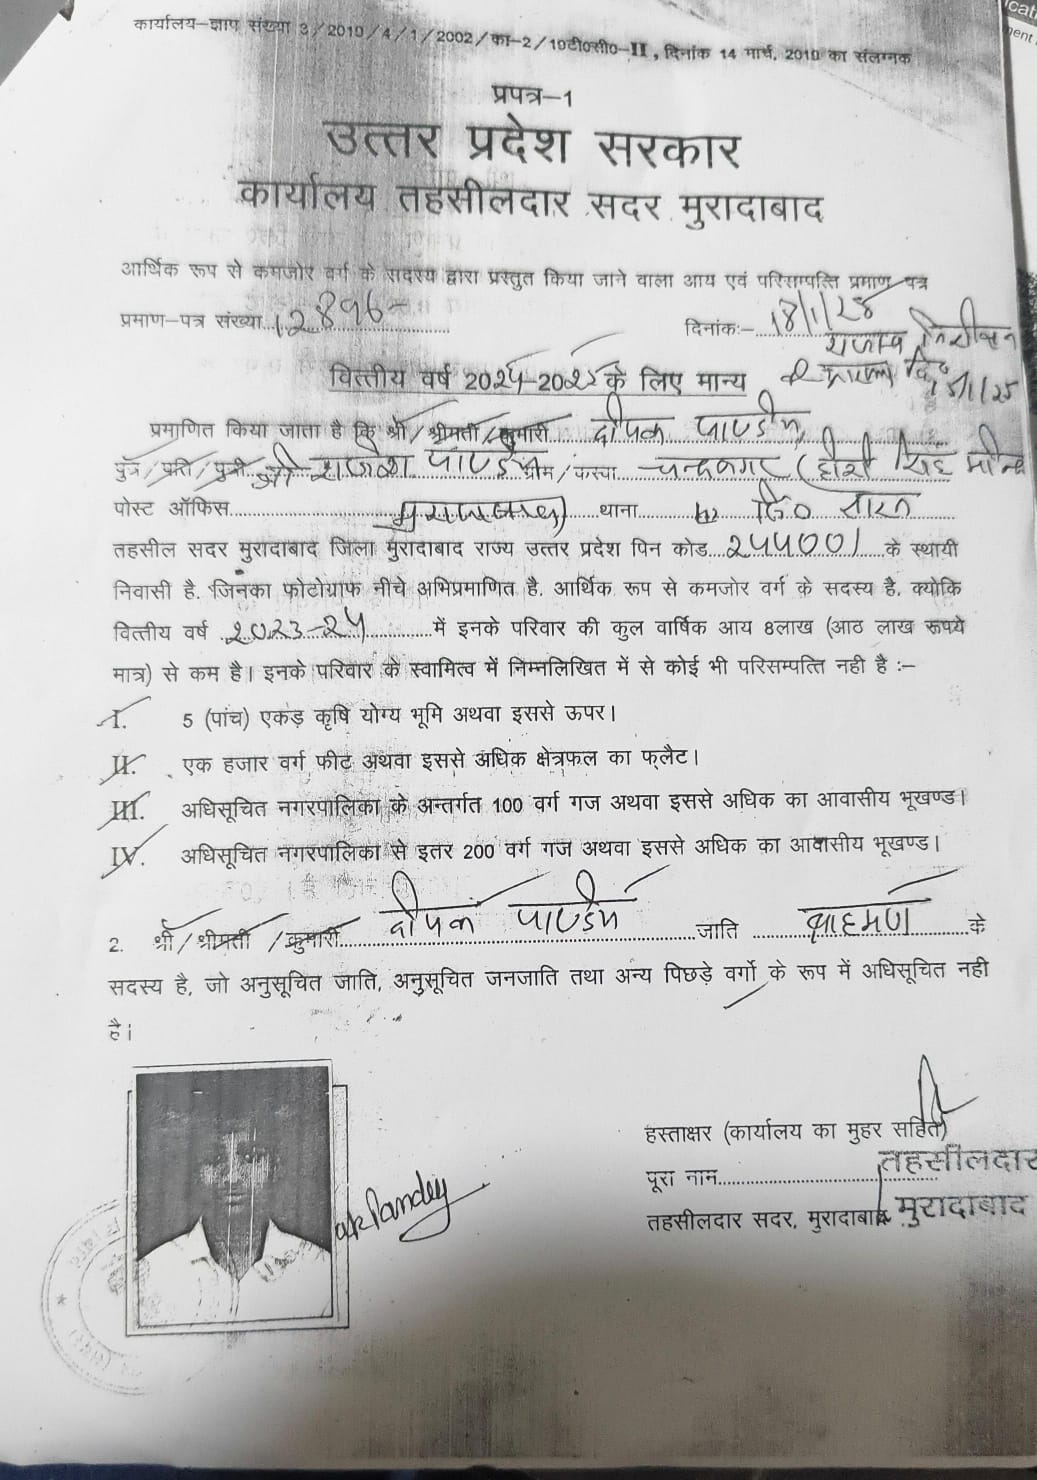 कार्यालय-ज्ञाप संख्या 3/2010/4/1/2002/का-2/10टी०सी०-II, दिनांक 14 मार्च, 2010 का संलग्नक
प्रपत्र-1
उत्तर प्रदेश सरकार
कार्यालय तहसीलदार सदर मुरादाबाद
आर्थिक रूप से कमजोर वर्ग के सदस्य द्वारा प्रस्तुत किया जाने वाला आय एवं परिसम्पत्ति प्रमाण पत्र
प्रमाण-पत्र संख्या 12896 दिनांक:- 18/1/25
राजस्व निरीक्षक
15/1/25
वित्तीय वर्ष 2024-2025 के लिए मान्य
प्रमाणित किया जाता है कि श्री/श्रीमती/कुमारी दीपक पाण्डेय
पुत्र/प्रति/पुत्री श्री राजेश पाण्डेय ग्राम/कस्वा चन्द्रनगर
पोस्ट ऑफिस मुरादाबाद थाना
तहसील सदर मुरादाबाद जिला मुरादाबाद राज्य उत्तर प्रदेश पिन कोड 244001 के स्थायी
निवासी है. जिनका फोटोग्राफ नीचे अभिप्रमाणित है. आर्थिक रूप से कमजोर वर्ग के सदस्य है. क्योकि
वित्तीय वर्ष 2023-24 में इनके परिवार की कुल वार्षिक आय 8लाख (आठ लाख रूपये
मात्र) से कम है। इनके परिवार के स्वामित्व में निम्नलिखित में से कोई भी परिसम्पत्ति नही है :-
I. 5 (पांच) एकड़ कृषि योग्य भूमि अथवा इससे ऊपर।
II. एक हजार वर्ग फीट अथवा इससे अधिक क्षेत्रफल का फ्लैट।
III. अधिसूचित नगरपालिका के अन्तर्गत 100 वर्ग गज अथवा इससे अधिक का आवासीय भूखण्ड।
IV. अधिसूचित नगरपालिका से इतर 200 वर्ग गज अथवा इससे अधिक का आवासीय भूखण्ड।
2. श्री/श्रीमती/कुमारी दीपक पाण्डेय जाति ब्राहमण के
सदस्य है, जो अनुसूचित जाति, अनुसूचित जनजाति तथा अन्य पिछड़े वर्गो के रूप में अधिसूचित नही
है।
हस्ताक्षर (कार्यालय का मुहर सहित)
पूरा नाम तहसीलदार
तहसीलदार सदर, मुरादाबाद मुरादाबाद
Pandey